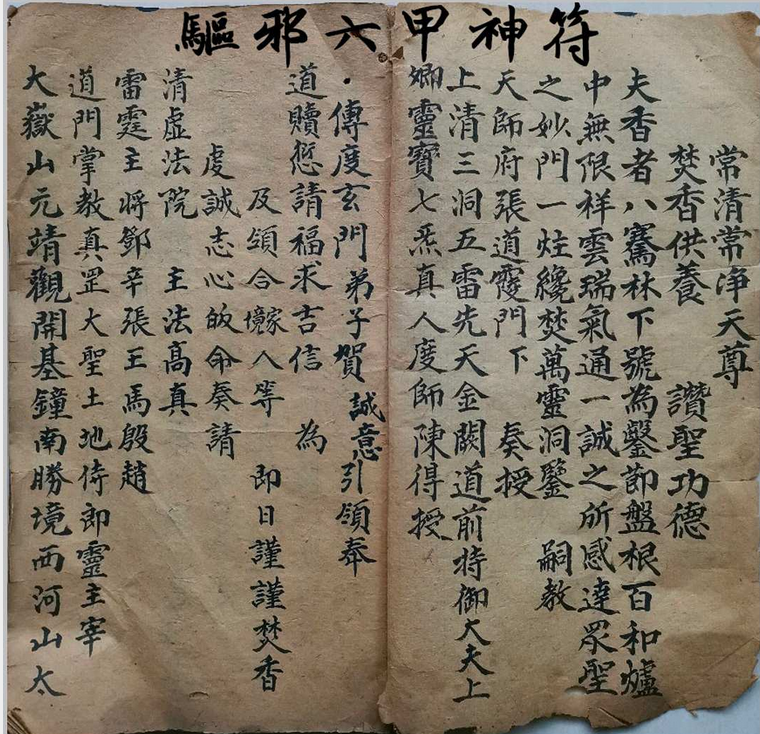 驅邪六甲神符
常清常净天尊
焚香供養 讚聖功德
夫香者八騫林下號為鑿節盤根百和爐
中無限祥雲瑞氣通一誠之所感達眾聖
之妙門一炷纔焚萬靈洞鑒 嗣教
天師府張道霞門下 奏授
上清三洞五雷先天金闕道前特御大夫上
卿靈寶七炁真人度師陳得授
·傳度玄門弟子賀誠意引領奉
道贖愆請福求吉信 為
及領合境人等 即日謹謹焚香
虔誠志心皈命奏請
清虛法院 主法高真
雷霆主將鄧辛張王馬殷趙
道門掌教真罡大聖土地侍即靈主宰
大嶽山元靖觀開基鐘南勝境西河山太